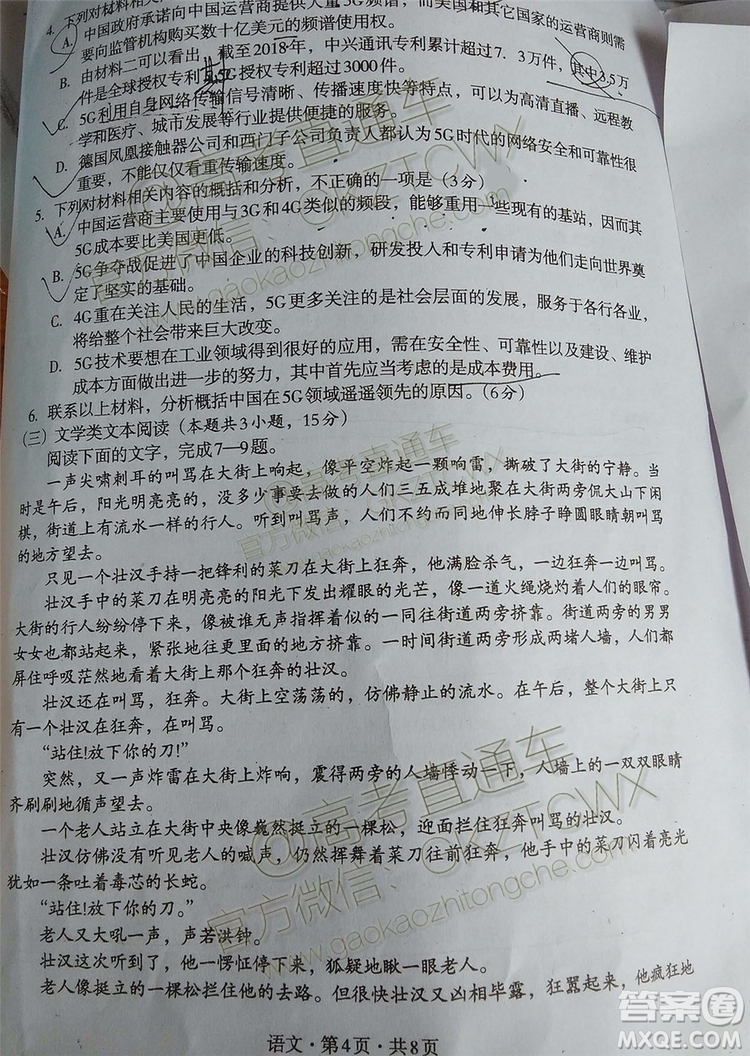 4. 下列对材料相关
A. 中国政府承诺向中国运营商提供大量5G频谱，而美国和其它国家的运营商则需
要向监管机构购买数十亿美元的频谱使用权。
B. 由材料二可以看出，截至2018年，中兴通讯专利累计超过7.3万件，其中3.5万
件是全球授权专利，5G授权专利超过3000件。
C. 5G利用自身网络传输信号清晰、传播速度快等特点，可以为高清直播、远程教
学和医疗、城市发展等行业提供便捷的服务。
D. 德国凤凰接触器公司和西门子公司负责人都认为5G时代的网络安全和可靠性很
重要，不能仅仅看重传输速度。
5. 下列对材料相关内容的概括和分析，不正确的一项是（3分）
A. 中国运营商主要使用与3G和4G类似的频段，能够重用一些现有的基站，因而其
5G成本要比美国更低。
B. 5G争夺战促进了中国企业的科技创新，研发投入和专利申请为他们走向世界奠
定了坚实的基础。
C. 4G重在关注人民的生活，5G更多关注的是社会层面的发展，服务于各行各业，
将给整个社会带来巨大改变。
D. 5G技术要想在工业领域得到很好的应用，需在安全性、可靠性以及建设、维护
成本方面做出进一步的努力，其中首先应当考虑的是成本费用。
6. 联系以上材料，分析概括中国在5G领域遥遥领先的原因。（6分）
（三）文学类文本阅读（本题共3小题，15分）
阅读下面的文字，完成7—9题。
一声尖啸刺耳的叫骂在大街上响起，像平空炸起一颗响雷，撕破了大街的宁静。当
时是午后，阳光明亮亮的，大街两旁享受着阳光的人们三五成堆地聚在大街两旁侃大山下闲
棋，街道上有流水一样的行人。听到叫骂声，人们不约而同地伸长脖子睁圆眼睛朝叫骂
的地方望去。
只见一个壮汉手持一把锋利的菜刀在大街上狂奔，他满脸杀气，一边狂奔一边叫骂。
壮汉手中的菜刀在明亮亮的阳光下发出耀眼的光芒，像一道火绳烧灼着人们的眼帘。
大街的行人纷纷停下来，像被谁无声指挥似的一同往街道两旁挤靠。街道两旁的男男
女女也站了起来，紧张地往里面的地方挤靠。一时间街道两旁形成了两堵人墙，人们都
屏住呼吸茫然地看着大街上那个狂奔的壮汉。
壮汉还在叫骂，狂奔。大街上空荡荡的，仿佛静止的流水。在午后，整个大街上只
有一个壮汉在狂奔，在叫骂。
“站住！放下你的刀！”
突然，又一声炸雷在大街上炸响，震得两旁的人墙悸动一下，人墙上的一双双眼睛
齐刷刷地循声望去。
一个老人站立在大街中央像巍然挺立的一棵松，迎面拦住狂奔叫骂的壮汉。
壮汉仿佛没有听见老人的喊声，仍然挥舞着菜刀往前狂奔，他手中的菜刀闪着亮光
犹如一条吐着毒芯的长蛇。
“站住！放下你的刀。”
老人又大吼一声，声若洪钟。
壮汉这次听到了，他一愣怔停下来，狐疑地瞅一眼老人。
老人像挺立的一棵松拦住他的去路。但很快壮汉又凶相毕露，狂嚣起来，他疯狂地
语文·第4页·共8页
@高考直通车
官方微信：GKZTCWX
www.gaokaozhitongche.com
@高考直通车
官方微信：GKZTCWX
www.gaokaozhitongche.com
答案圈
MXQE.COM